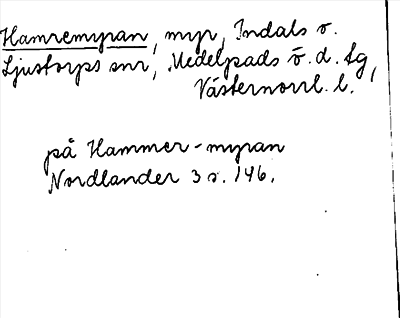 Hamremyran, myr, Indals o.
Ljustorps snr, Medelpads ö. d. tg,
Västernorrl. l.
på Hammer-myran
Nordlander 3 s. 146.